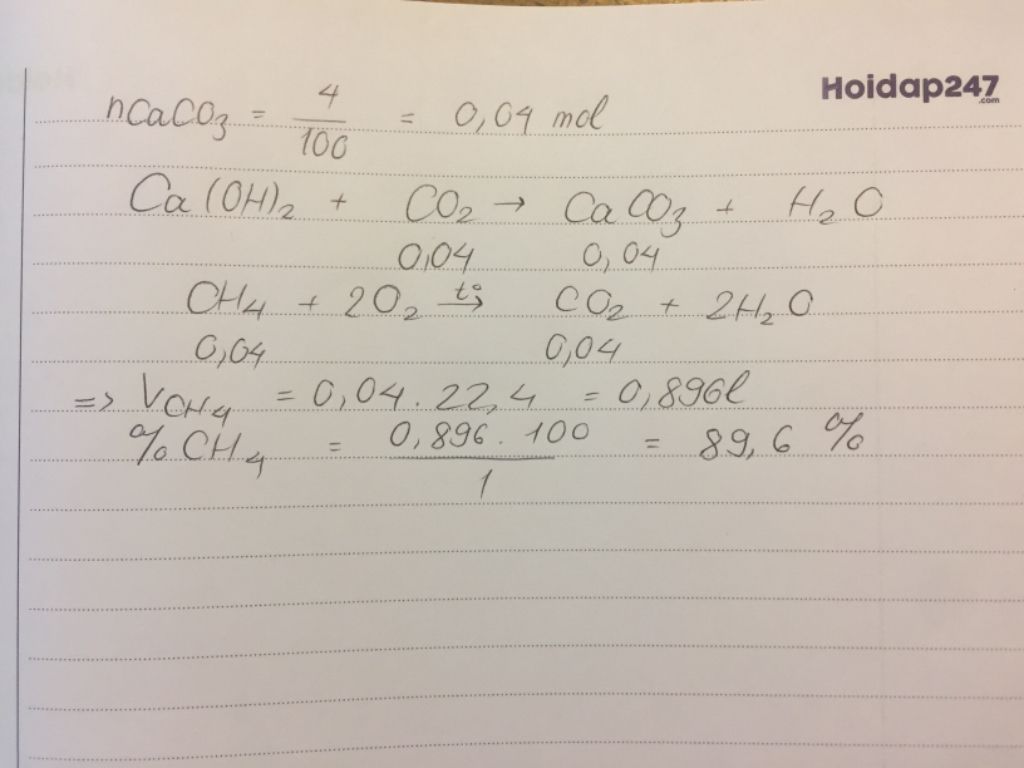 Hoidap247
.com
nCaCO₃ = 4/100 = 0,04 mol
Ca(OH)₂ + CO₂ → CaCO₃ + H₂O
0,04 0,04
CH₄ + 2O₂ t°→ CO₂ + 2H₂O
0,04 0,04
=> VCH₄ = 0,04 . 22,4 = 0,896l
%CH₄ = 0,896 . 100/1 = 89,6 %